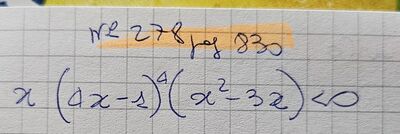 N° 278 pag 830
x (4x-1)⁴ (x²-3x) <0